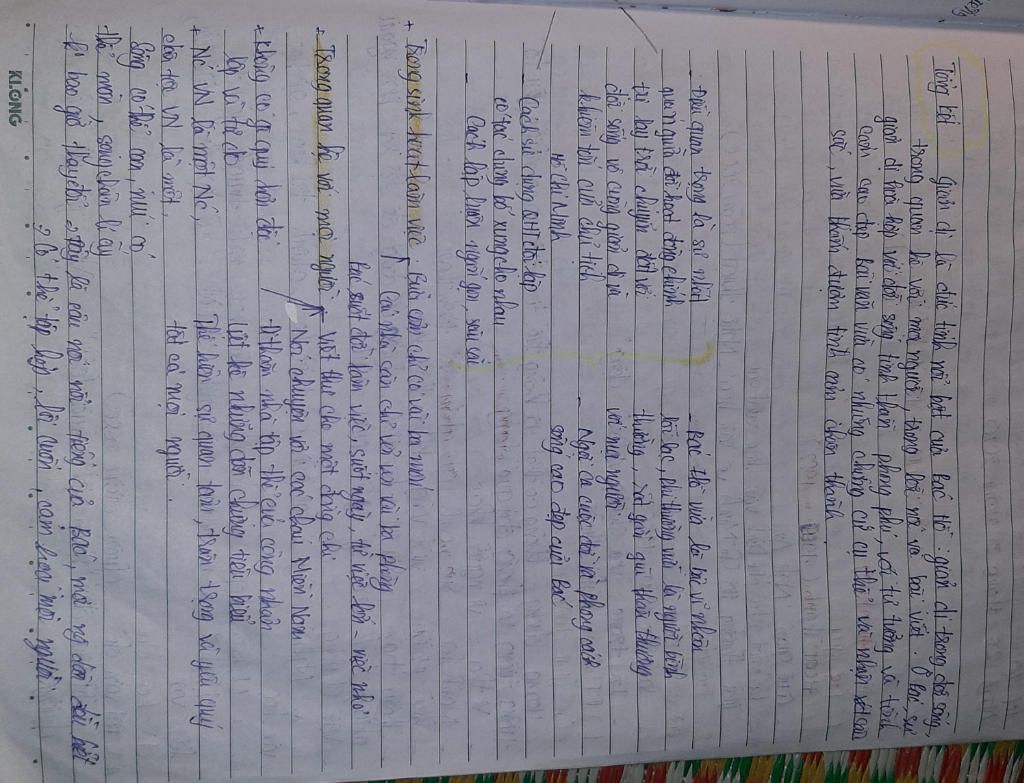 Tổng kết giản dị là đức tính nổi bật của Bác Hồ giản dị trong đời sống,
trong quan hệ với mọi người, trong lời nói và bài viết. Ở Bác, sự
giản dị hoà hợp với đời sống tinh thần phong phú, với tư tưởng và tình
cảm cao đẹp bài văn vừa có những chứng cứ cụ thể và nhận xét sâu
sắc, vừa thấm đượm tình cảm chân thành.
- Điều quan trọng là sự nhất
quán giữa đời hoạt động chính
trị lay trời chuyển đất với
đời sống vô cùng giản dị và
khiêm tốn của chủ tịch
Hồ Chí Minh
- Cách sử dụng QHT đối lập
có tác dụng bổ xung cho nhau
- Cách lập luận ngắn gọn, sâu
- Bác Hồ vừa là bậc vĩ nhân
lỗi lạc, phi thường vừa là người bình
thường, rất gần gũi thân thương
với mọi người
- Ngợi ca cuộc đời và phong cách
sống cao đẹp của Bác
+ Trong sinh hoạt làm việc Bữa cơm chỉ có vài ba món
Cái nhà sàn chỉ vẻn vẹn vài ba phòng
Bác suốt đời làm việc, suốt ngày, từ việc lớn - việc nhỏ
+ Trong quan hệ với mọi người Viết thư cho một đồng chí
Nói chuyện với các cháu Miền Nam
- Đi thăm nhà tập thể của công nhân
Liệt kê những dẫn chứng tiêu biểu
Thể hiện sự quan tâm, trân trọng và yêu quý
tất cả mọi người.
+ Không có gì quý hơn độc
lập và tự do
+ Nc VN là một Nc,
dân tộc VN là một,
Sông có thể cạn, núi có
thể mòn, song chân lí ấy
ko bao giờ thay đổi đây là câu nói nổi tiếng của Bác, mọi ng dân đều biết
có thể tập hợp, lôi cuốn, cảm hoá mọi người
KLONG